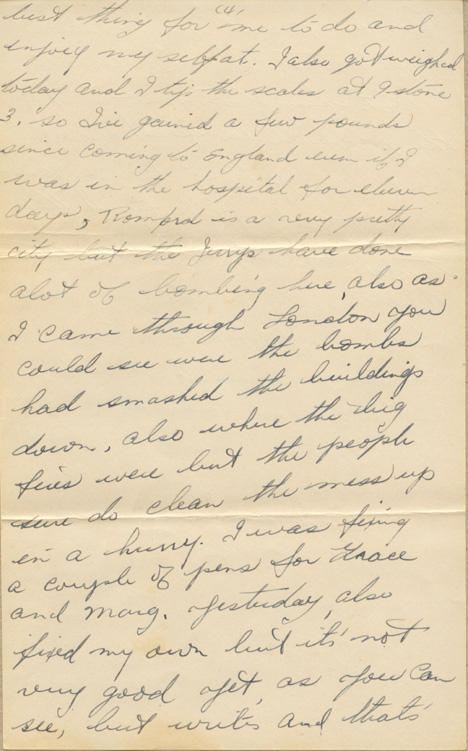 (4)
best thing for me to do and
enjoy my self at. I also got weighed
today and I tip the scales at 9 stone
3. so I've gained a few pounds
since coming to England even if I
was in the hospital for eleven
days, Romford is a very pretty
city but the Jerrys have done
alot of bombing here, also as
I came through London you
could see were the bombs
had smashed the buildings
down, also where the big
fires were but the people
sure do clean the mess up
in a hurry. I was fixing
a couple of pens for Grace
and Marg. yesterday, also
fixed my own but it's not
very good yet, as you can
see, but writes and that's